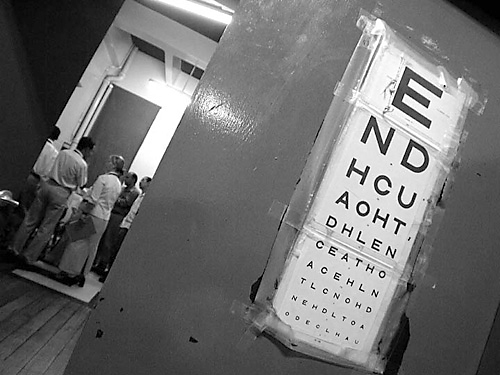 E
ND
HCU
AOHT
DHLEN
CEATHO
ACEHLN
TLCNOHD
NEHDLTOA
ODECLHAU